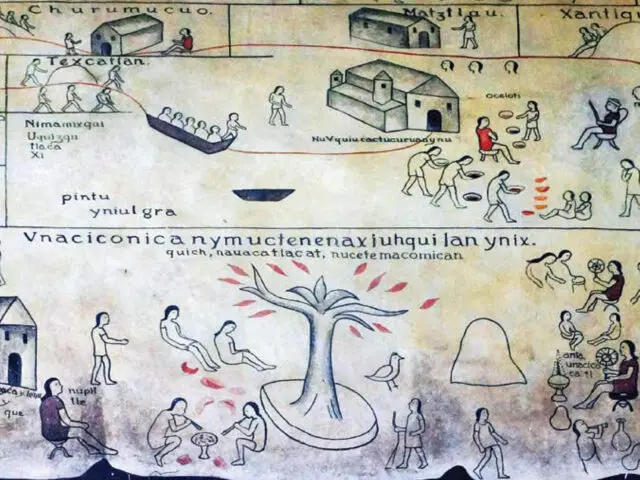 Churumucuo.
Matztlau.
Xantiq
Texcatlan.
Nimamixqui
Uquizqu
tlaca
Xi
ocelotl
pintu
yniulgra
Vnaciconica nymuctenenaxiuhqui lan ynix.
quich, nauacatlacat, nucetemacomican
nupil
lle
y
que
anta
unacica
ca tl